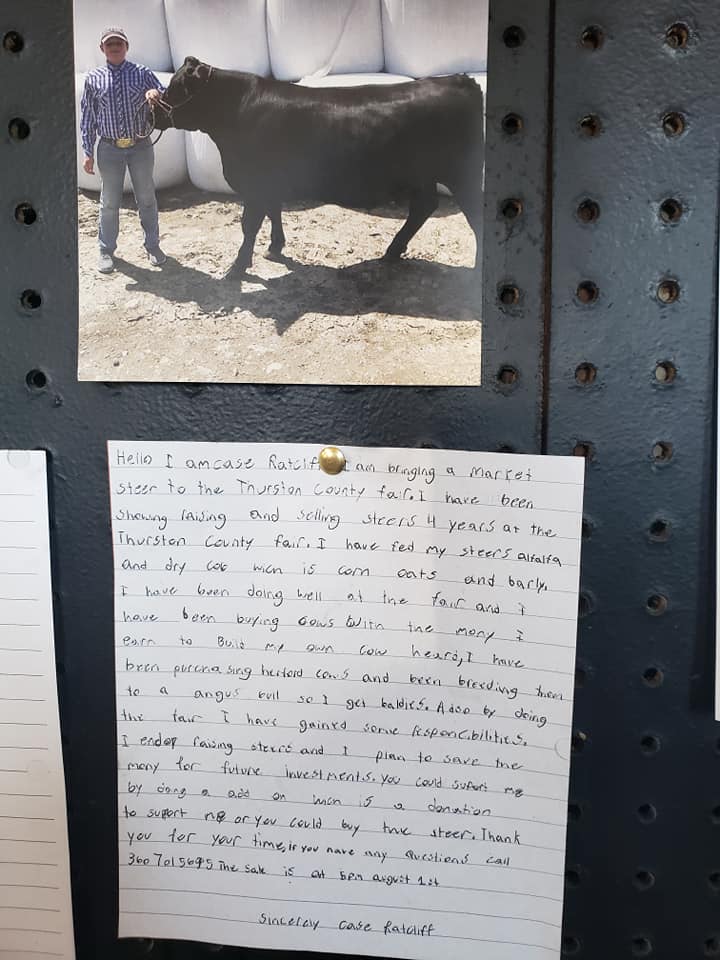 Hello I am case Ratcliff I am bringing a market
steer to the Thurston County fair. I have been
showing raising and selling steers 4 years at the
Thurston County fair. I have fed my steers alfalfa
and dry cob wich is corn oats and barly.
I have been doing well at the fair and I
have been buying cows with the mony I
earn to Build my own cow heard, I have
been purchasing herford cows and been breeding them
to a angus bull so I get baldies. Also by doing
the fair I have gained some responcibilities.
I endoy raising steers and I plan to save the
mony for future investments. you could suport me
by doing a add on wich is a donation
to suport me or you could buy the steer. Thank
you for your time, if you have any questions call
360 701 5695 The sale is at 6pm august 1st
Sincerely case Ratcliff